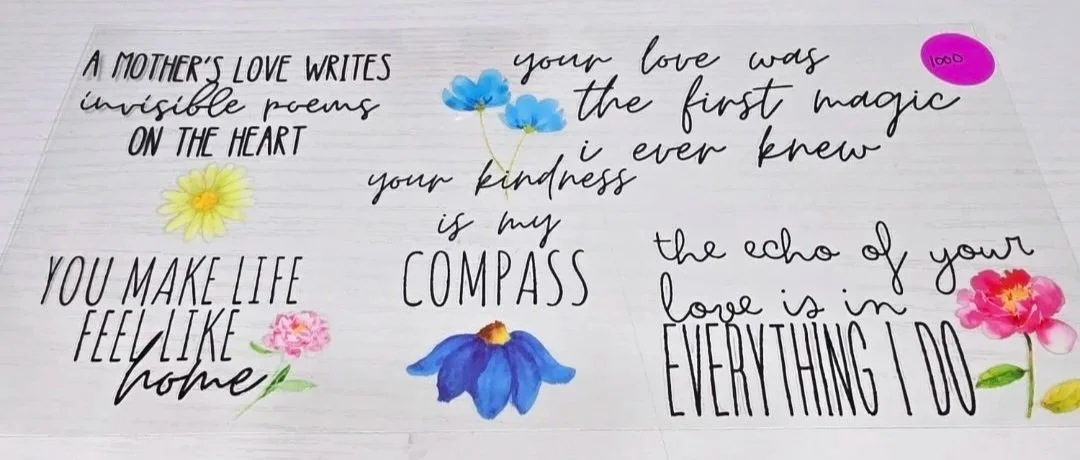 A MOTHER'S LOVE WRITES
invisible poems
ON THE HEART
your love was
the first magic
i ever knew
1000
your kindness
is my
COMPASS
YOU MAKE LIFE
FEEL LIKE
home
the echo of your
love is in
EVERYTHING I DO